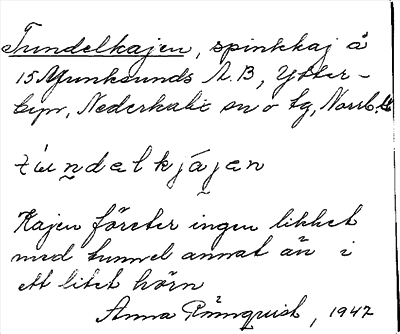 Tundelkajen, spinkkaj å
15 Munksunds A.B, Ytter-
byn, Nederkalix sn o tg, Norrb. l.
tùndelkjájen
Kajen företer ingen likhet
med tunnel annat än i
ett litet hörn
Anna Rönnquist, 1947